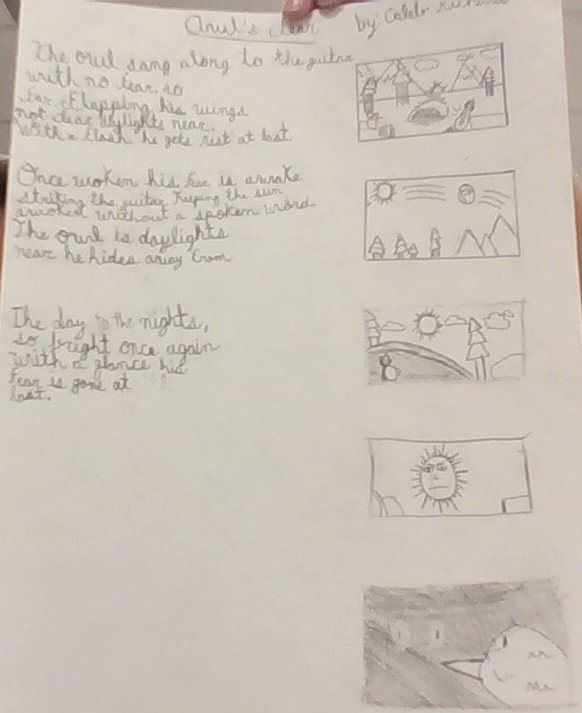 by: Caleb
The owl sang along to the guitar
with no fear, so
far flapping his wings
not dear daylights near,
With a clash he gets rist at last
Once woken his foe is awake
striking the guitar keeping the sun
awoken without a spoken word
The owl is daylights
near he hides away from
The day to the nights,
so bright once again
with a glance his
fear is gone at
last.